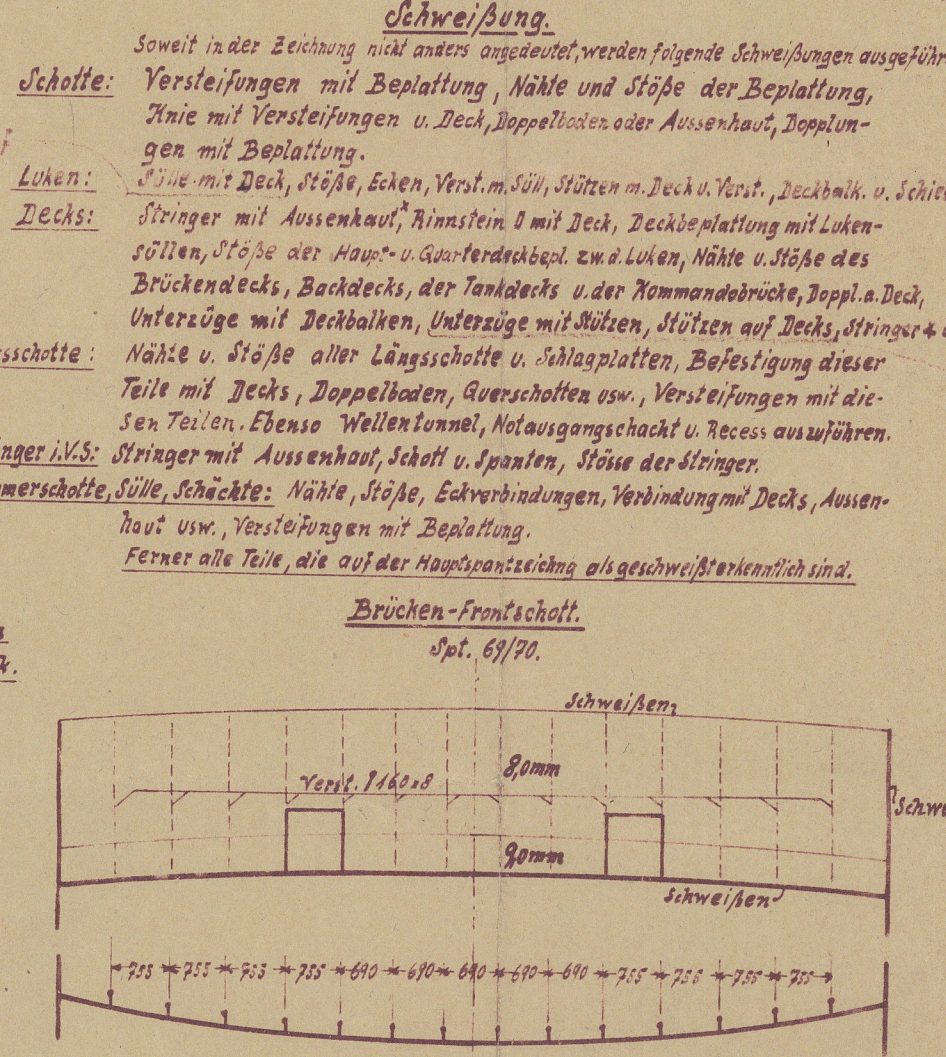 Schweißung.
Soweit in der Zeichnung nicht anders angedeutet, werden folgende Schweißungen ausgeführ
Schotte: Versteifungen mit Beplattung, Nähte und Stöße der Beplattung,
Knie mit Versteifungen u. Deck, Doppelboden oder Aussenhaut, Dopplun-
gen mit Beplattung.
Luken: Sülle mit Deck, Stöße, Ecken, Verst. m. Süll, Stützen m. Deck u. Verst., Deckbalk. u. Schie
Decks: Stringer mit Aussenhaut,* Rinnstein mit Deck, Deckbeplattung mit Luken-
süllen, Stöße der Haupt- u. Quarterdeckbepl. zw. d. Luken, Nähte u. Stöße des
Brückendecks, Backdecks, der Tankdecks u. der Kommandobrücke, Doppl. a. Deck,
Unterzüge mit Deckbalken, Unterzüge mit Stützen, Stützen auf Decks, Stringer
sschotte: Nähte u. Stöße aller Längsschotte u. Schlagplatten, Befestigung dieser
Teile mit Decks, Doppelboden, Querschotten usw., Versteifungen mit die-
sen Teilen. Ebenso Wellentunnel, Notausgangschacht u. Recess auszuführen.
nger i.V.S: Stringer mit Aussenhaut, Schott u. Spanten, Stösse der Stringer.
merschotte, Sülle, Schächte: Nähte, Stöße, Eckverbindungen, Verbindung mit Decks, Aussen-
haut usw., Versteifungen mit Beplattung.
Ferner alle Teile, die auf der Hauptspantzeichng als geschweißt erkenntlich sind.
Brücken-Frontschott.
Spt. 69/70.
k.
Schweißen
8,0mm
Verst. 160x8
Schwe
9,0mm
Schweißen
755 755 755 755 690 690 690 690 690 755 755 755 755